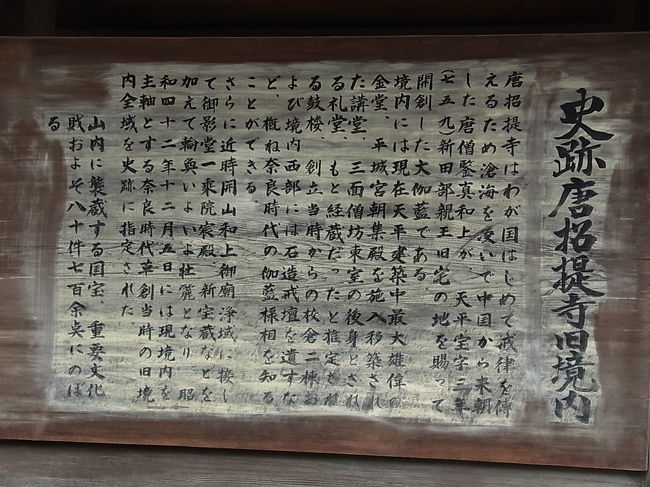 史跡唐招提寺旧境内
唐招提寺はわが国はじめて戒律を傳
えるため滄海を凌いで中国から来朝
した唐僧鑒真和上が 天平宝字三年
(七五九)新田部親王旧宅の地を賜って
開創した大伽藍である
境内には現在天平建築中最大雄偉の
金堂、平城宮朝集殿を施入移築され
た講堂、三面僧坊東室の後身とされ
る礼堂、もと経蔵だったと推定され
る鼓楼、創立当時からの校倉二棟お
よび境内西部には石造戒壇を遺すな
ど、概ね奈良時代の伽藍様相を知る
ことができる
さらに近時開山和上御廟浄域に接し
て御影堂一乗院宸殿、新宝蔵などを
加えて輪奐いよいよ壮麗となり 昭
和四十二年十二月五日には現境内を
主軸とする奈良時代草創当時の旧境
内全域を史跡に指定された
山内に襲蔵する国宝、重要文化
財およそ八十件七百余点にのぼ
る